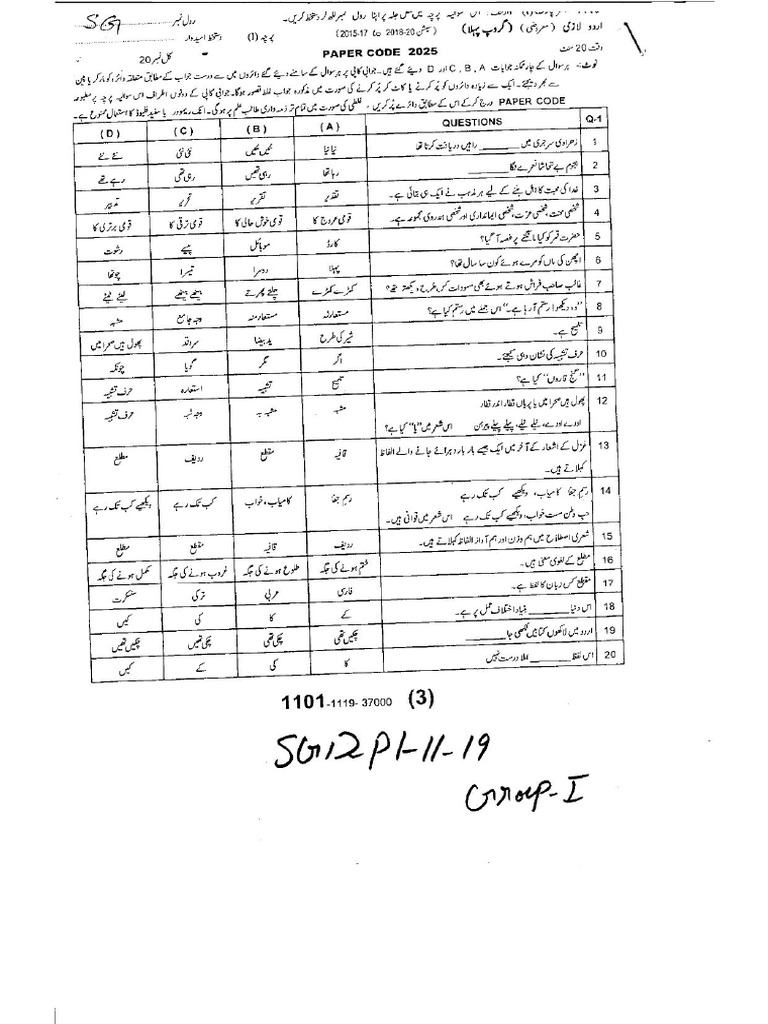 SG1
رول نمبر
اردو لازمی (معروضی) (گروپ پہلا) (سیشن 20-2018 تا 17-2015) پرچہ (I) دستخط امیدوار
وقت 20 منٹ PAPER CODE 2025 کل نمبر 20
نوٹ:۔ ہر سوال کے چار ممکنہ جوابات A ، B ، C اور D دیئے گئے ہیں۔ جوابی کاپی پر ہر سوال کے سامنے دیئے گئے دائروں میں سے درست جواب کے مطابق متعلقہ دائرہ کو مارکر یا پین
سے بھر دیجئے۔ ایک سے زیادہ دائروں کو پُر کرنے یا کاٹ کر پُر کرنے کی صورت میں مذکورہ جواب غلط تصور ہوگا۔ جوابی کاپی کے دونوں اطراف اس سوالیہ پرچہ پر مطبوعہ
PAPER CODE درج کر کے اس کے مطابق دائرے پُر کریں۔ غلطی کی صورت میں تمام تر ذمہ داری طالب علم پر ہوگی۔ انک ریموور یا سفید فلیوڈ کا استعمال ممنوع ہے۔
Q-1 QUESTIONS (A) (B) (C) (D)
1 زہراوی سرجری میں ______ راہیں دریافت کرتا تھا نیا نیا نئیں نئیں نئی نئی نئے نئے
2 ہجوم بے تحاشا نعرے لگا ______ رہا تھا رہی تھیں رہی تھی رہے تھے
3 خدا کی محبت کا اہل بننے کے لیے ہر مذہب نے ایک ہی بتائی ہے۔ تقدیر تقریر تحریر تدبیر
4 شخصی محنت، شخصی عزت، شخصی ایمانداری اور شخصی ہمدردی مجموعہ ہے۔ قومی عروج کا قومی خوش حالی کا قومی ترقی کا قومی برتری کا
5 حضرت قمر کو کیا مانگنے پر غصہ آ گیا؟ کارڈ موبائل پیسے رشوت
6 اچھن کی ماں کو مرے ہوئے کون سا سال تھا؟ پہلا دوسرا تیسرا چوتھا
7 غالب صاحب فراش ہوتے ہوئے بھی مسودات کس طرح دیکھتے تھے؟ کھڑے کھڑے چلتے پھرتے بیٹھے بیٹھے لیٹے لیٹے
8 "وہ دیکھو! رستم آ رہا ہے۔" اس جملے میں رستم کیا ہے؟ مستعارلہ مستعار منہ وجہ جامع مشبہ
9 تلمیح ہے۔ شیر کی طرح ید بیضا سرو قد پھول ہیں صحرا میں
10 حرف تشبیہ کی نشان دہی کیجئے۔ اگر مگر گویا چونکہ
11 "گنج قاروں" کیا ہے؟ تلمیح تشبیہ استعارہ حرف تشبیہ
12 پھول ہیں صحرا میں یا پریاں قطار اندر قطار
اودے اودے، نیلے نیلے، پیلے پیلے پیرہن اس شعر میں "یا" کیا ہے؟ مشبہ مشبہ بہ وجہ شبہ حرف تشبیہ
13 غزل کے اشعار کے آخر میں ایک جیسے بار بار دہرائے جانے والے الفاظ
کہلاتے ہیں۔ قافیہ مقطع ردیف مطلع
14 رسم جفا کامیاب، دیکھیے کب تک رہے
حب وطن مست خواب، دیکھیے کب تک رہے اس شعر میں قوافی ہیں۔ رسم جفا کامیاب، خواب کب تک رہے دیکھیے کب تک رہے
15 شعری اصطلاح میں ہم وزن اور ہم آواز الفاظ کہلاتے ہیں۔ ردیف قافیہ مقطع مطلع
16 مطلع کے لغوی معنی ہیں۔ ختم ہونے کی جگہ طلوع ہونے کی جگہ غروب ہونے کی جگہ مکمل ہونے کی جگہ
17 مقطع کس زبان کا لفظ ہے۔ فارسی عربی ترکی سنسکرت
18 اس دنیا ______ بنیاد اختلاف عمل پر ہے۔ کے کا کی کیں
19 اردو میں لاکھوں کتابیں لکھی جا ______ چکیں تھی چکی تھی چکی تھیں چکیں تھیں
20 اس لفظ ______ املا درست نہیں کا کی کے کیں
1101-1119- 37000 (3)
SG12P1-11-19
Group-I